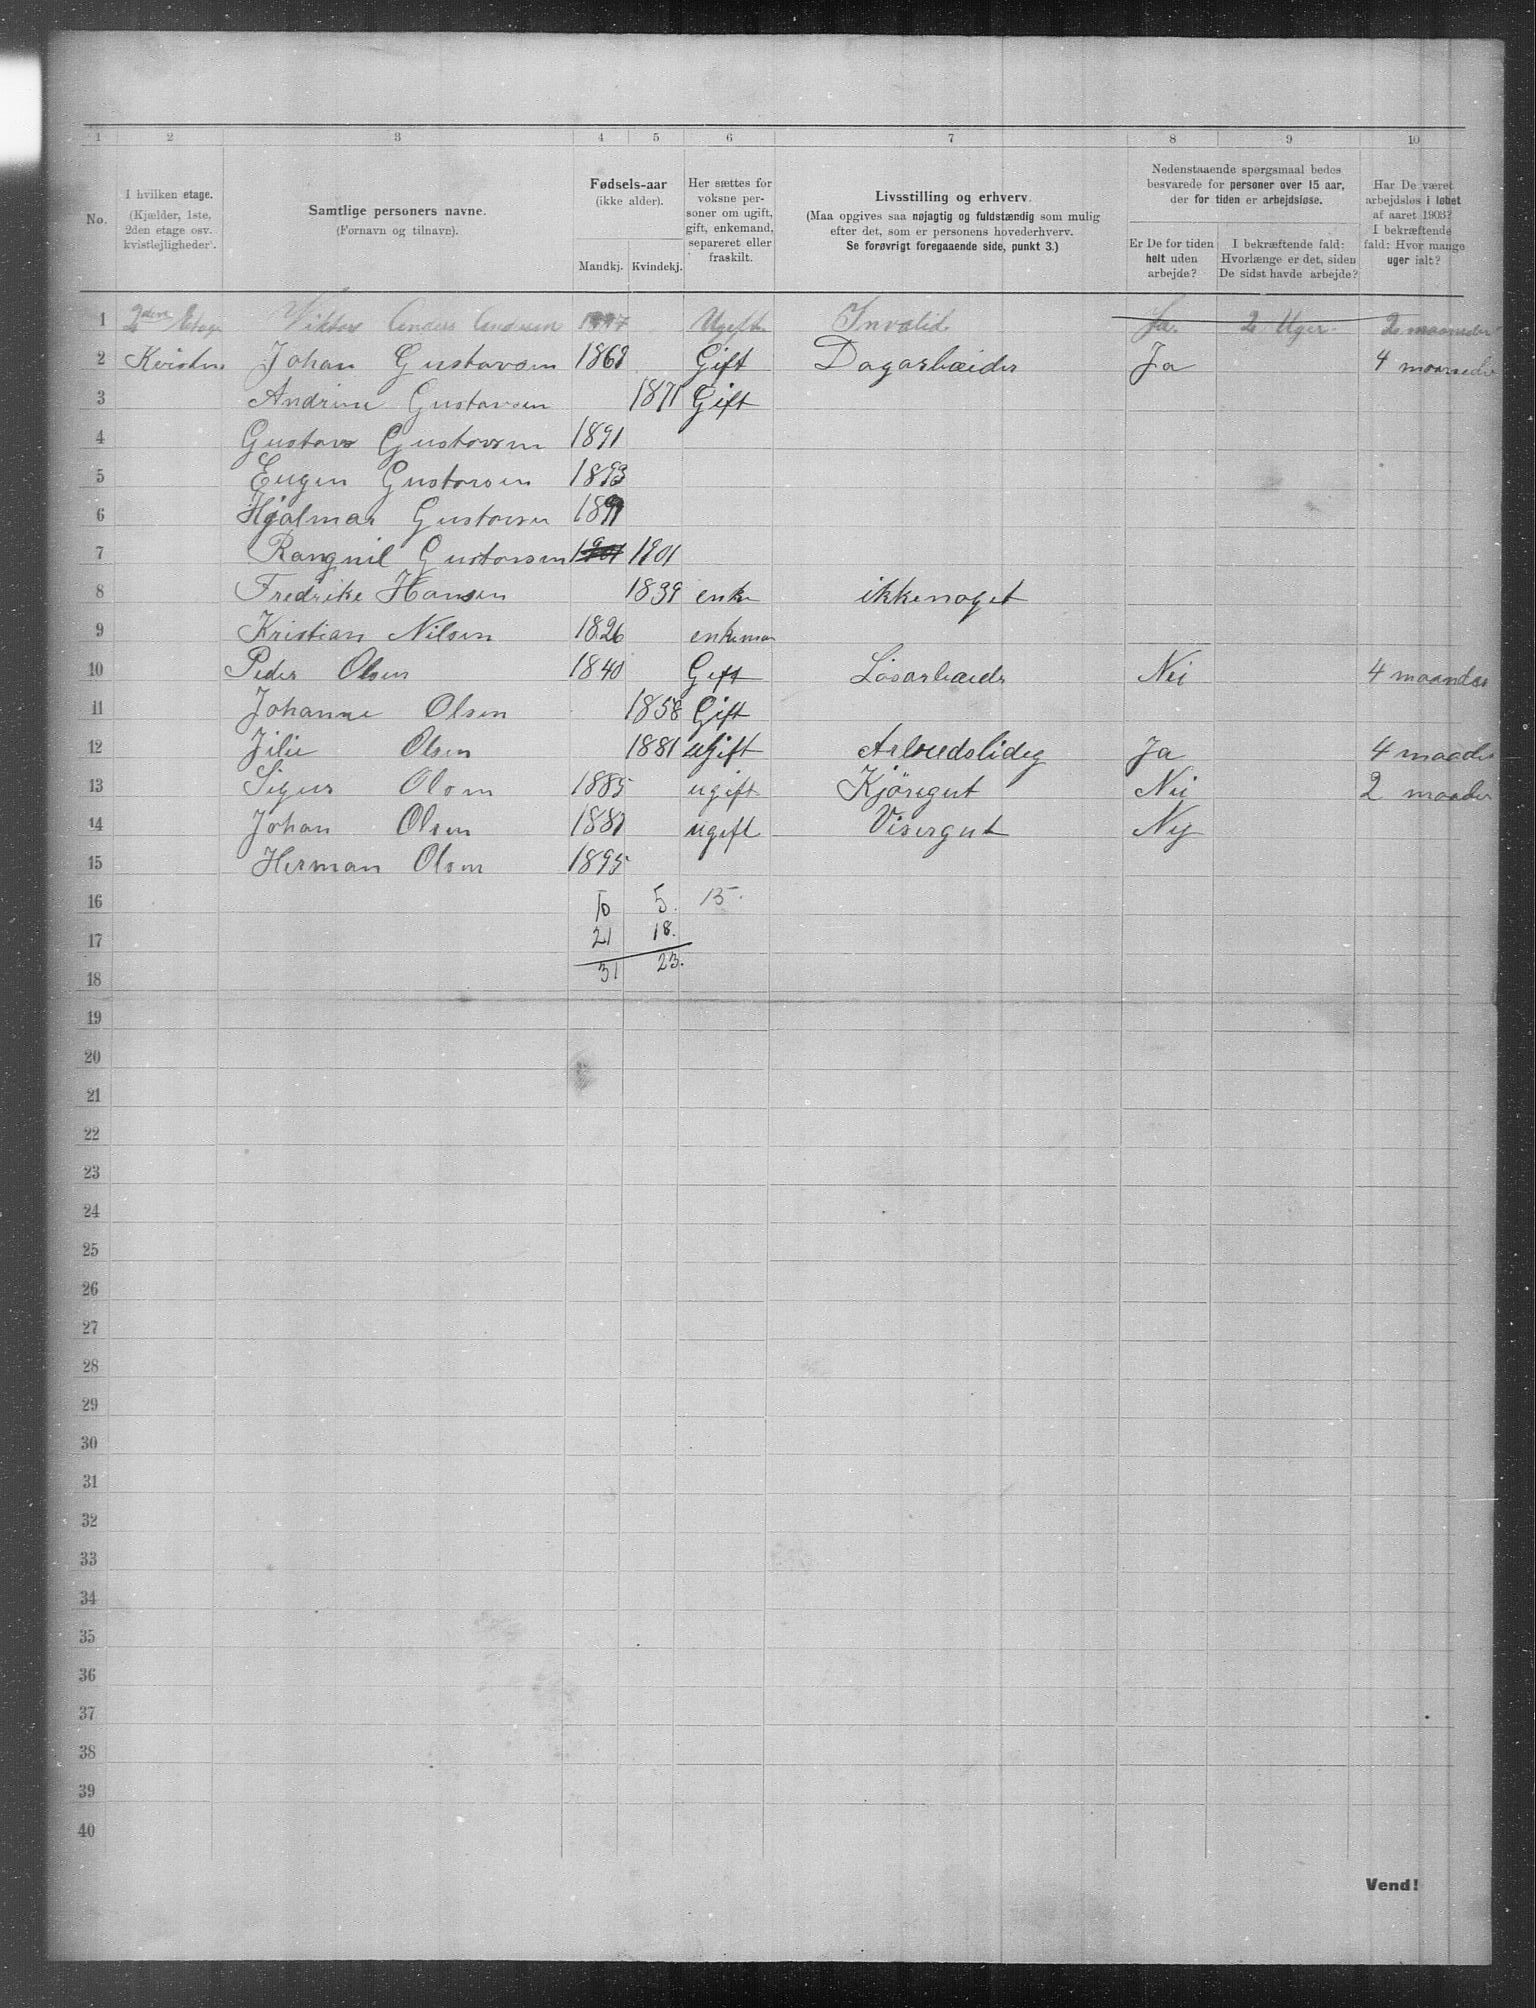 1 2 3 4 5 6 7 8 9 10
No.
I hvilken etage.
(Kjælder, 1ste,
2den etage osv.
kvistlejligheder).
Samtlige personers navne.
(Fornavn og tilnavn).
Fødsels-aar
(ikke alder).
Mandkj. Kvindekj.
Her sættes for
voksne per-
soner om ugift,
gift, enkemand,
separeret eller
fraskilt.
Livsstilling og erhverv.
(Maa opgives saa nøjagtig og fuldstændig som mulig
efter det, som er personens hovederhverv.
Se forøvrigt foregaaende side, punkt 3.)
Nedenstaaende spørgsmaal bedes
besvarede for personer over 15 aar,
der for tiden er arbejdsløse.
Er De for tiden
helt uden
arbejde?
I bekræftende fald:
Hvorlænge er det, siden
De sidst havde arbejde?
Har De været
arbejdsløs i løbet
af aaret 1903?
I bekræftende
fald: Hvor mange
uger ialt?
1 2den Etage Viktor Anders Andersen Ugift Invalid Ja 2 Uger 2 maaneder
2 Kvisten Johan Gustavsen 1868 Gift Dagarbæider Ja 4 maaneder
3 Andrine Gustavsen 1871 Gift
4 Gustav Gustavsen 1891
5 Eugen Gustavsen 1893
6 Hjalmar Gustavsen
7 Rangnil Gustavsen 1901 1901
8 Fredrike Hansen 1839 enke ikkenoget
9 Kristian Nilsen 1826 enkeman
10 Peder Olsen 1840 Gift Løsarbæider Nei 4 maander
11 Johanne Olsen 1858 Gift
12 Jilie Olsen 1881 ugift Arbeidslidig Ja 4 maader
13 Sigur Olsen 1885 ugift Kjøregut Nei 2 maader
14 Johan Olsen 1887 ugift Visergut Nej
15 Herman Olsen 1895
16 10 5. 15.
17 21 18.
18 31 23.
19
20
21
22
23
24
25
26
27
28
29
30
31
32
33
34
35
36
37
38
39
40
Vend!